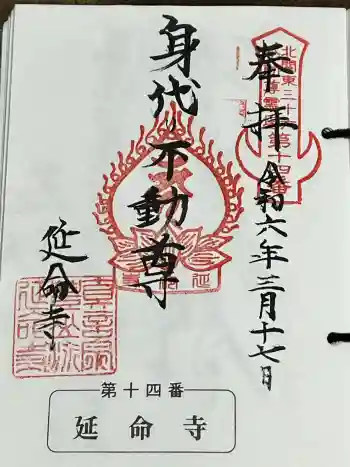 奉拝
令和六年三月十七日
北関東三十六
第十四番
身代り不動尊
延命寺
第十四番
延命寺